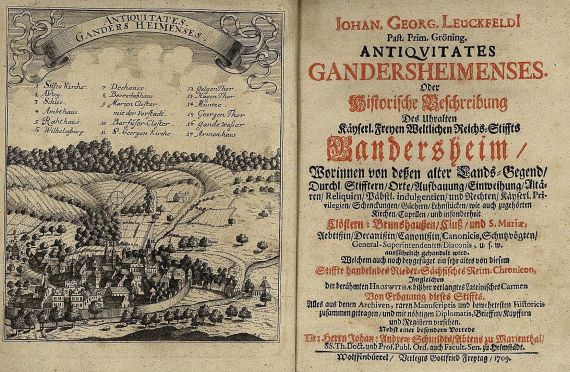 ANTIQUITATES
GANDERSHEIMENSES.
1 Stiffts Kirche.
2 Abtey
3 Schloss.
4 Ambthaus
5 Rahthaus
6 Wilhelmsburg
7 Dechaney
9 Marien Closter
mit der Vorstadt.
10 Barfüsser-Closter
11 S. Georgen Kirche.
12 Galgen Thor
14 Müntze
15 Georgen Thor
16 Gande wasser
17 Armenhaus
IOHAN. GEORG. LEUCKFELDI
Past. Prim. Gröning.
ANTIQVITATES
GANDERSHEIMENSES.
Oder
Historische Beschreibung
Des Uhralten
Käyserl. Freyen Weltlichen Reichs-Stiffts
Gandersheim/
Worinnen von deßen alter Lands-Gegend/
Durchl. Stifftern/ Orte/ Aufbauung/ Einweihung/ Altä-
ren/ Reliquien/ Päbstl. indulgentien/ und Rechten/ Käyserl. Pri-
vilegien/ Schenckungen/ Gühtern/ Lehnstücken/ wie auch zugehörten
Kirchen/ Capellen/ und insonderheit
Clöstern: Brunshaußen/ Cluß/ und S. Mariæ,
Aebtißin/ Decanißin/ Canonißin/ Canonicis, Schutzvögten/
General-Superintendenten/ Diaconis, u. s. w.
ausführlich gehandelt wird.
Welchem auch noch beygefüget ein sehr altes von diesem
Stiffte handelndes Nieder-Sächsisches Reim-Chronicon,
Imgleichen
der berühmten HROSWITHÆ bißher verlangtes Lateinisches Carmen
Von Erbauung dieses Stiffts.
Alles aus denen Archiven, raren Manuscriptis und bewehrtesten Historicis
zusammen getragen/ und mit nöhtigen Diplomatis, Brieffen/ Kupffern
und Registern versehen.
Nebst einer besondern Vorrede
Tit: Herrn Johan: Andreæ Schmidts/ Abtens zu Marienthal/
SS. Th. Doct. und Prof. Publ. Ord. auch Facult. Sen. zu Helmstädt.
Wolffenbüttel/ Verlegts Gottfried Freytag/ 1709.